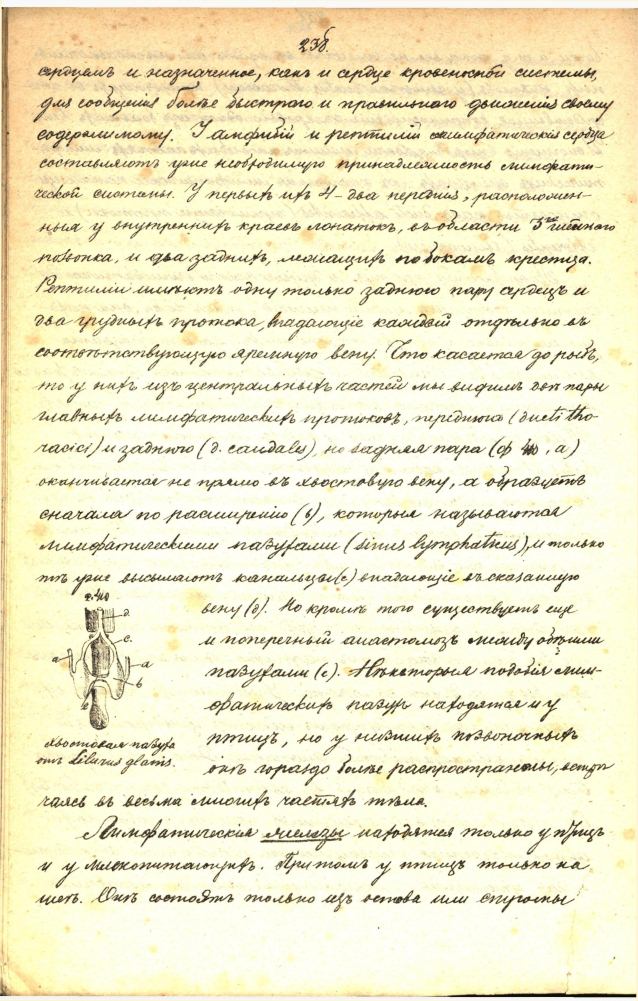 238.
сердцемъ и назначенное, какъ и сердце кровеносной системы,
для сообщенія болѣе быстраго и правильнаго движенія своему
содержимому. У амфибій и рептилій лимфатическія сердца
составляютъ уже необходимую принадлежность лимфати-
ческой системы. У первыхъ ихъ 4 – два переднія, расположен-
ныя у внутреннихъ краевъ лопатокъ, въ области 3го шейнаго
позвонка, и два заднихъ, лежащихъ по бокамъ крестца.
Рептиліи имѣютъ одну только заднюю пару сердецъ и
два грудныхъ протока, впадающіе каждый отдѣльно въ
соотвѣтствующую яремную вену. Что касается до рыбъ,
то у нихъ изъ центральныхъ частей мы видимъ двѣ пары
главныхъ лимфатическихъ протоковъ, переднюю (ducti tho-
racici) и заднюю (d. caudales), но задняя пара (ф , a)
оканчивается не прямо въ хвостовую вену, а образуетъ
сначала по расширенію (b), которыя называются
лимфатическими пазухами (sinus lymphaticus), и только
тѣ уже высылаютъ канальцы (c) впадающіе въ сказанную
вену (d). Но кромѣ того существуетъ еще
и поперечный анастомозъ между обѣими
пазухами (e). Нѣкоторыя подобія лим-
фатическихъ пазухъ находятся и у
птицъ, но у низшихъ позвоночныхъ
онѣ гораздо болѣе распространены, встрѣ-
чаясь въ весьма многихъ частяхъ тѣла.
d.
c.
a
a
b
хвостовая пазуха
отъ Silurus glanis.
Лимфатическія железы находятся только у птицъ
и у млекопитающихъ. Притомъ у птицъ только на
шеѣ. Онѣ состоятъ только изъ остова или стромы